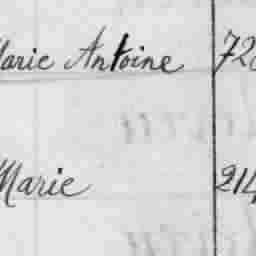 Marie Antoine 728
Marie 214